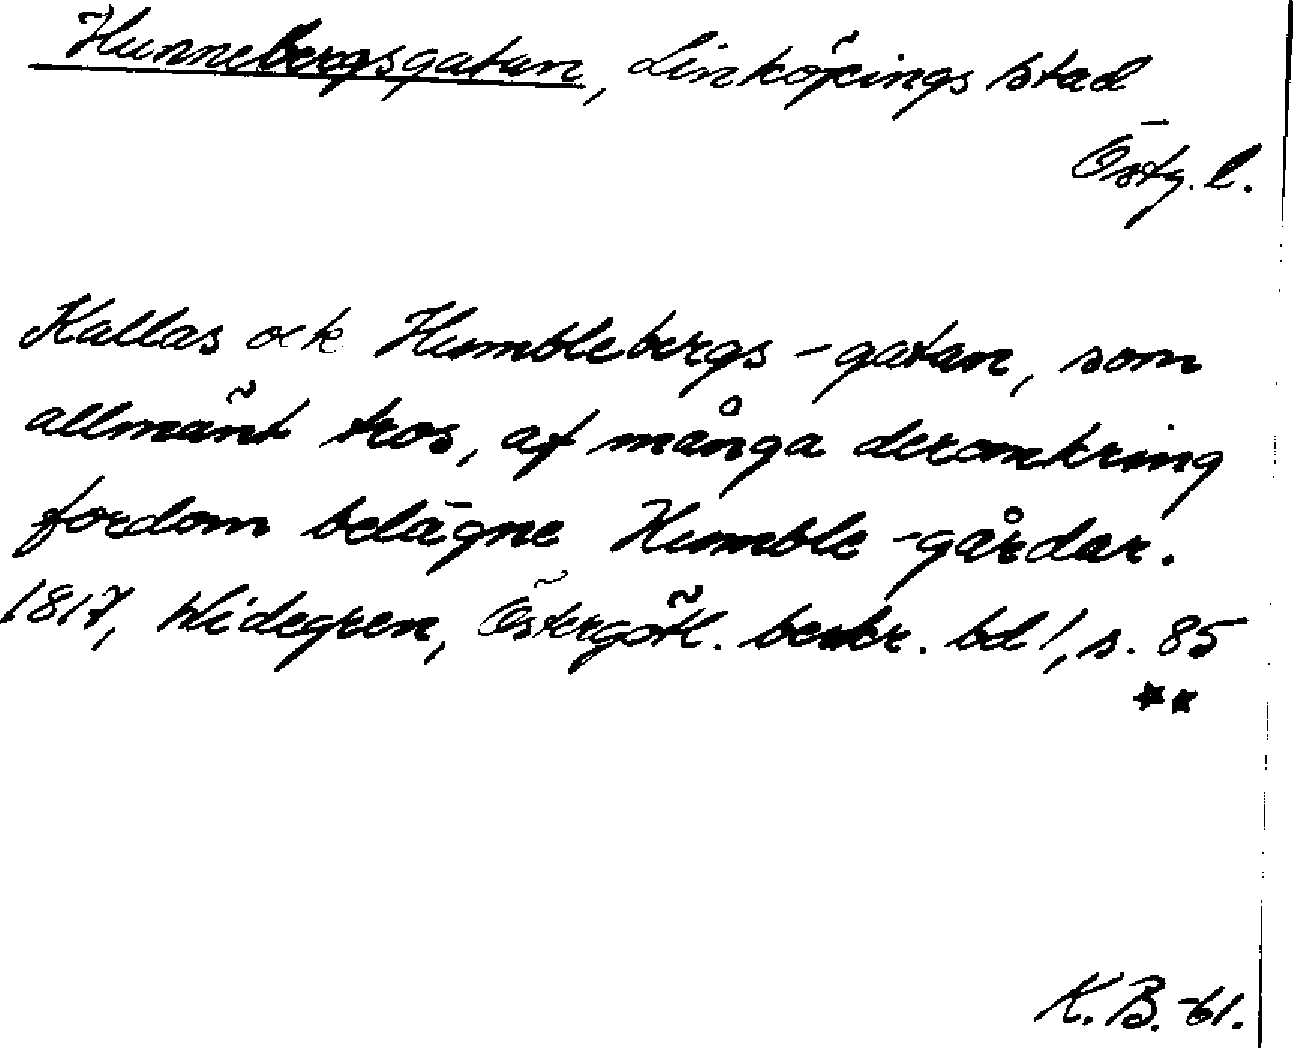 Hunnebergsgatan, Linköpings stad
Östg. l.
Kallas ock Humblebergs-gatan, som
allmänt tros, af många deromkring
fordom belägne Humble-gårdar.
1817, Widegren, Östergötl. beskr. bd 1, s. 85
**
K. B. -61.